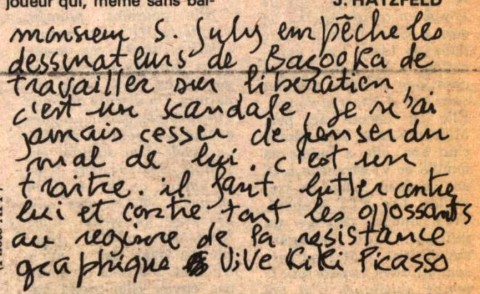 joueur qui, même sans bal-
J. HATZFELD
monsieur S. July empêche les
dessinateurs de Bazooka de
travailler sur liberation,
c'est un scandale, je n'ai
jamais cesser de penser du
mal de lui. c'est un
traitre. il faut lutter contre
lui et contre tout les opossants
au regime de la resistance
graphique VIVE KIKI PICASSO